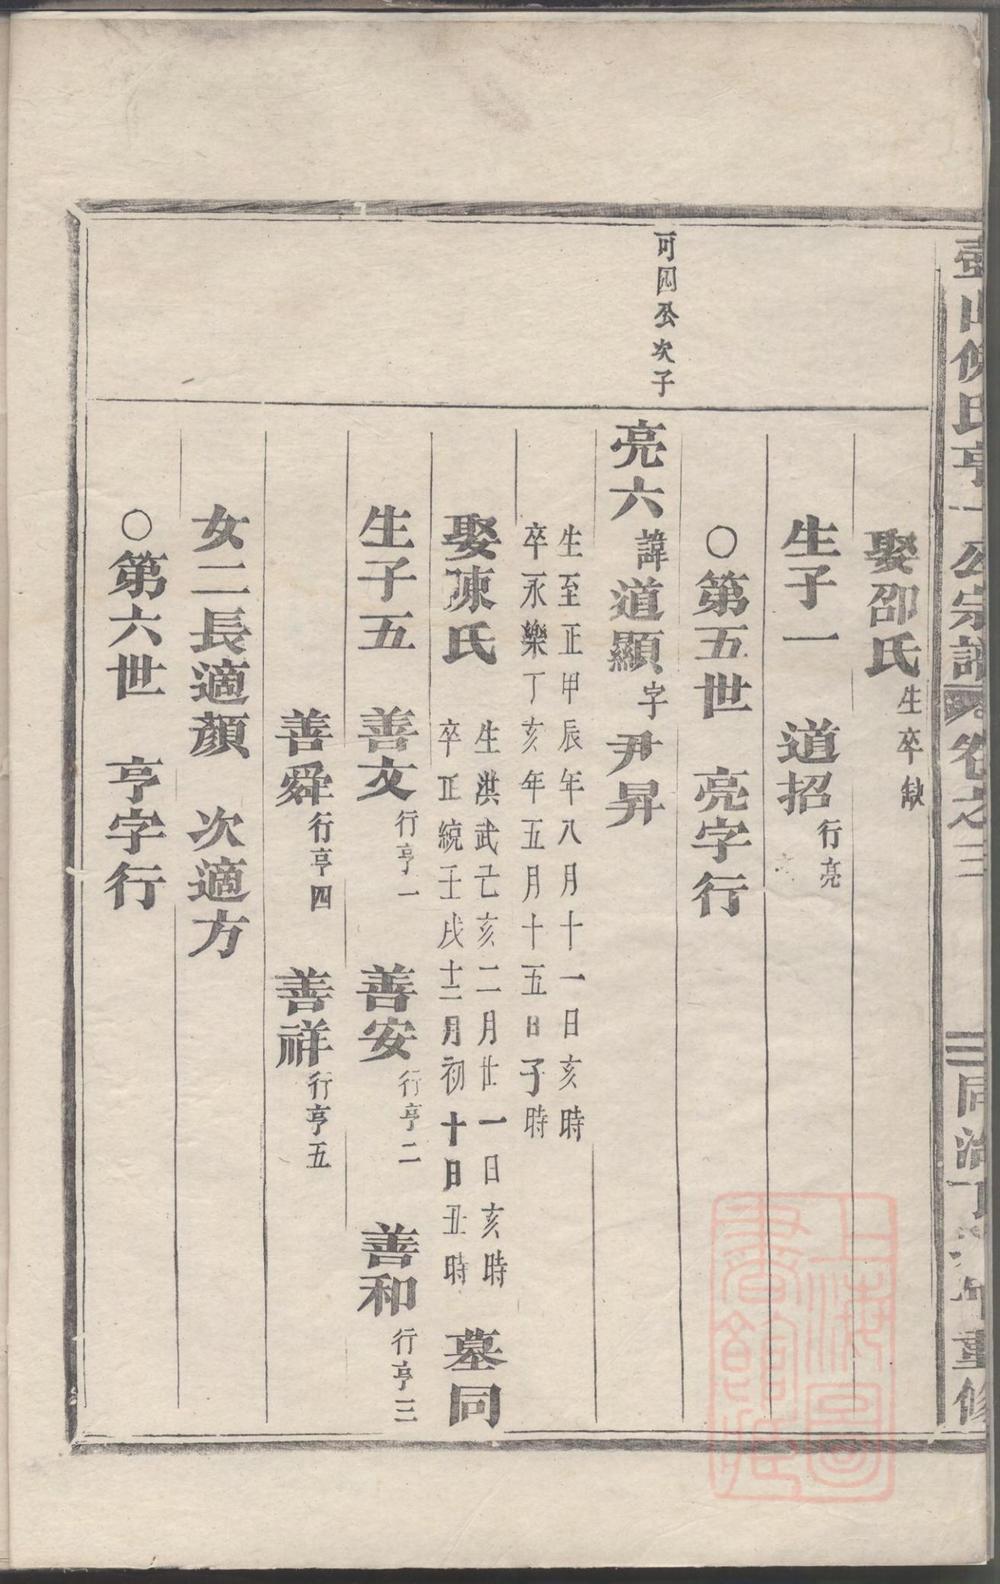 壺山侯氏亨一公宗譜 卷之三 三 同治丁 年重修
娶邵氏生卒缺
生子一 道招行亮
○第五世 亮字行
可四公次子
亮六諱道顯字尹昇
生至正甲辰年八月十一日亥時
卒永樂丁亥年五月十五日子時
娶陳氏
生洪武己亥二月廿一日亥時
卒正統壬戌十二月初十日丑時
墓同
生子五 善文行亨一 善安行亨二 善和行亨三
善舜行亨四 善祥行亨五
女二長適顏 次適方
○第六世 亨字行
上海圖書館藏